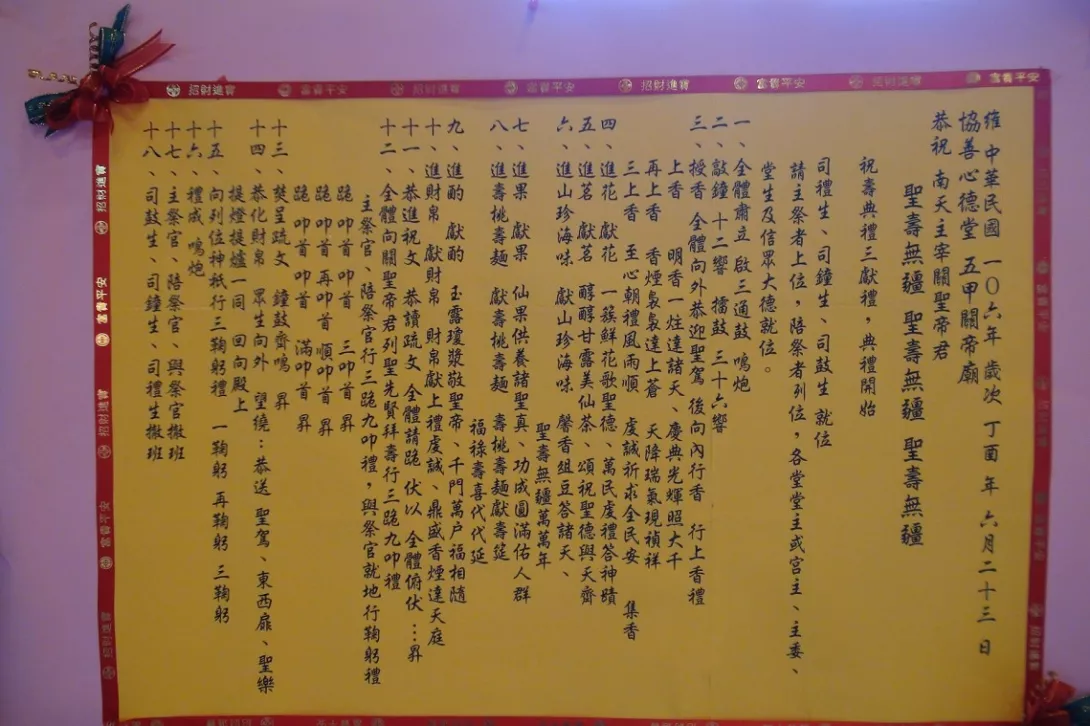 招財進寶 富貴平安 招財進寶 富貴平安 招財進寶 富貴平安 招財進寶 富貴平安
維 中華民國 一〇六年 歲次 丁酉 年 六月二十三 日
協善心德堂 五甲關帝廟
恭祝 南天主宰關聖帝君
聖壽無疆 聖壽無疆 聖壽無疆
祝壽典禮三獻禮，典禮開始
司禮生、司鐘生、司鼓生 就位
請主祭者上位，陪祭者列位，各堂堂主或宮主、主委、
堂生及信眾大德就位。
一、全體肅立 啟三通鼓 鳴炮
二、敲鐘 十二響 擂鼓 三十六響
三、授香 全體向外恭迎聖駕 後向內行香 行上香禮
上香 明香一炷達諸天、慶典光輝照大千
再上香 香煙裊裊達上蒼 天降瑞氣現禎祥
三上香 至心朝禮風雨順 虔誠祈求全民安 集香
四、進花 獻花 一簇鮮花歌聖德、萬民虔禮答神賜
五、進茗 獻茗 醇醇甘露美仙茶、頌祝聖德與天齊
六、進山珍海味 獻山珍海味 馨香俎豆答諸天、
聖壽無疆萬萬年
七、進果 獻果 仙果供養諸聖真、功成圓滿佑人群
八、進壽桃壽麵 獻壽桃壽麵 壽桃壽麵獻壽筵
福祿壽喜代代延
九、進酌 獻酌 玉露瓊漿敬聖帝、千門萬户福相隨
十、進財帛 獻財帛 財帛獻上禮虔誠、鼎盛香煙達天庭
十一、恭進祝文 恭讀疏文 全體請跪 伏以 全體俯伏…昇
十二、全體向關聖帝君列聖先賢拜壽行三跪九叩禮
主祭官、陪祭官行三跪九叩禮，與祭官就地行鞠躬禮
跪 叩首 叩首 三叩首 昇
跪 叩首 再叩首 順叩首 昇
跪 叩首 叩首 滿叩首 昇
十三、焚呈疏文 鐘鼓齊鳴 昇
十四、恭化財帛 眾生向外 望繞：恭送 聖駕、東西扉、聖樂
提燈提爐一同 回向殿上
十五、向列位神祇行三鞠躬禮 一鞠躬 再鞠躬 三鞠躬
十六、禮成 鳴炮
十七、主祭官、陪祭官、與祭官撤班
十八、司鼓生、司鐘生、司禮生撤班
招財進寶
富貴平安
招財進寶
富貴平安
招財進寶